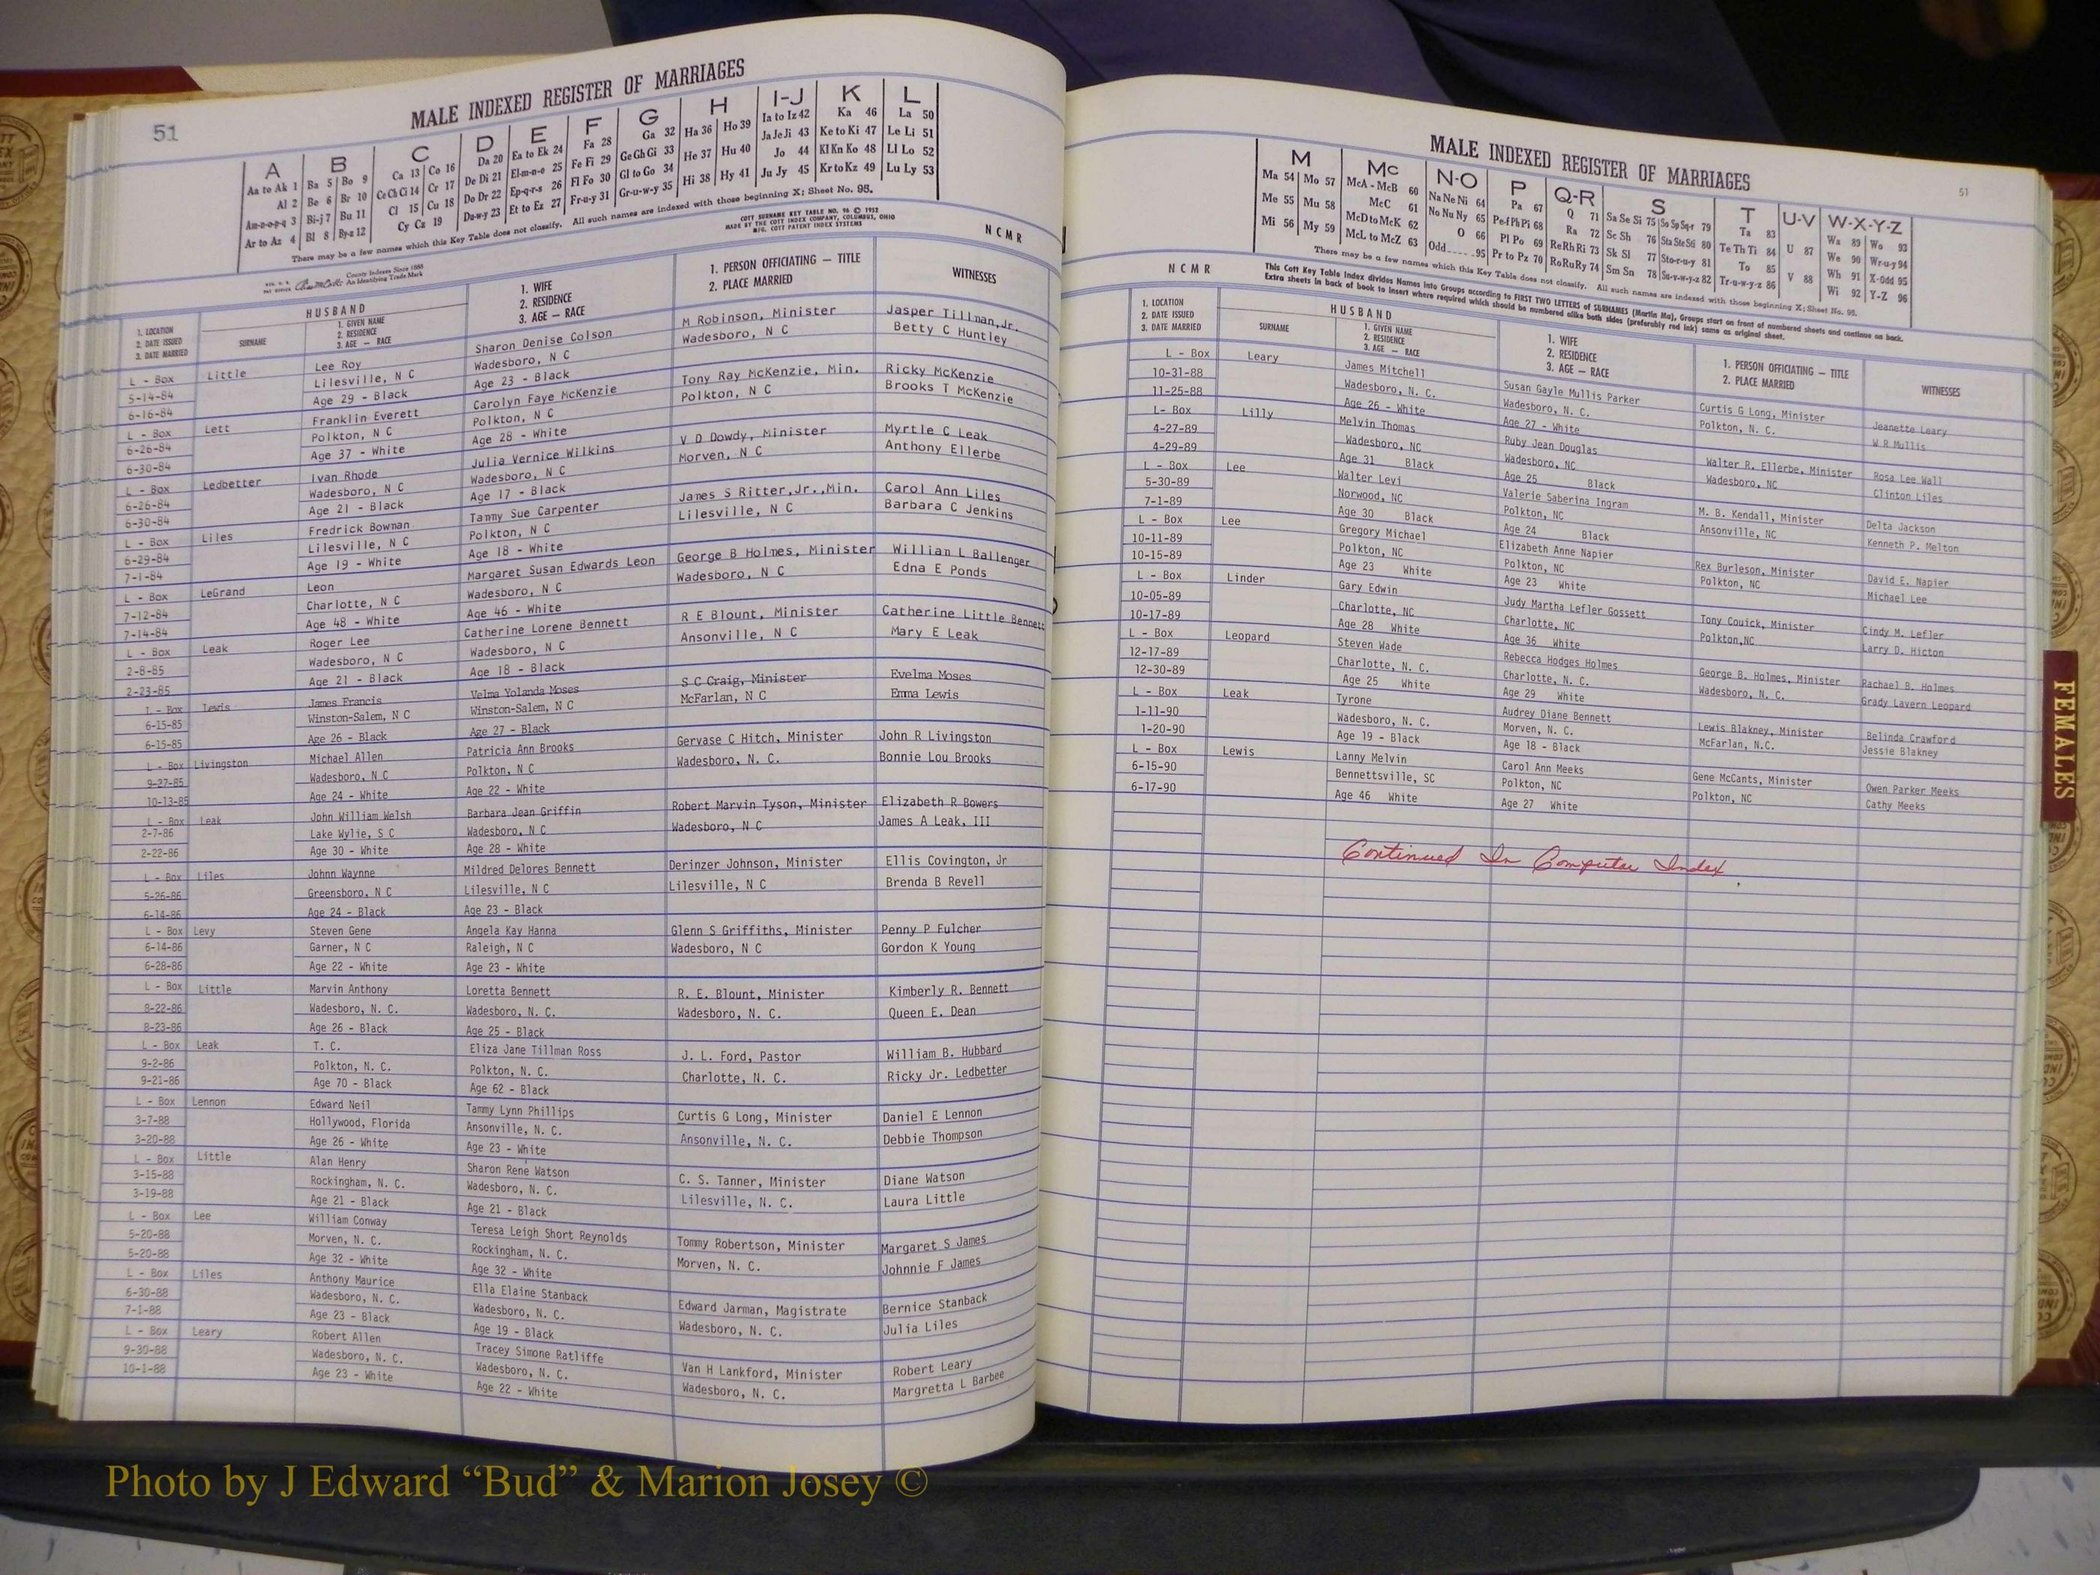 51
MALE INDEXED REGISTER OF MARRIAGES
A B C D E F G H I-J K L
Aa to Ak 1 Ba 5 Bo 9 Ca 13 Co 16 Da 20 Ea to Ek 24 Fa 28 Ga 32 Ha 36 Ho 39 Ia to Iz 42 Ka 46 La 50
Al 2 Be 6 Br 10 Ce Ch Ci 14 Cr 17 De Di 21 El-m-n-o 25 Fe Fi 29 Ge Gh Gi 33 He 37 Hu 40 Ja Je Ji 43 Ke to Ki 47 Le Li 51
Am-n-o-p-q 3 Bi-j 7 Bu 11 Cl 15 Cu 18 Do Dr 22 Ep-q-r-s 26 Fl Fo 30 Gl to Go 34 Hi 38 Hy 41 Jo 44 Kl Kn Ko 48 Ll Lo 52
Ar to Az 4 Bl 8 By-z 12 Cy Cz 19 Du-w-y 23 Et to Ez 27 Fr-u-y 31 Gr-u-w-y 35 Ju Jy 45 Kr to Kz 49 Lu Ly 53
There may be a few names which this Key Table does not classify. All such names are indexed with those beginning X; Sheet No. 95.
County Indexes Since 1888
An Identifying Trade Mark
COTT SURNAME KEY TABLE NO. 96 © 1952
MADE BY THE COTT INDEX COMPANY, COLUMBUS, OHIO
MFG. COTT PATENT INDEX SYSTEMS
NCMR
1. LOCATION
2. DATE ISSUED
3. DATE MARRIED
HUSBAND
SURNAME
1. GIVEN NAME
2. RESIDENCE
3. AGE — RACE
1. WIFE
2. RESIDENCE
3. AGE — RACE
1. PERSON OFFICIATING — TITLE
2. PLACE MARRIED
WITNESSES
L - Box Little Lee Roy Sharon Denise Colson M Robinson, Minister Jasper Tillman,Jr.
5-14-84 Lilesville, N C Wadesboro, N C Wadesboro, N C Betty C Huntley
6-16-84 Age 29 - Black Age 23 - Black
L - Box Lett Franklin Everett Carolyn Faye McKenzie Tony Ray McKenzie, Min. Ricky McKenzie
6-26-84 Polkton, N C Polkton, N C Polkton, N C Brooks T McKenzie
6-30-84 Age 37 - White Age 28 - White
L - Box Ledbetter Ivan Rhode Julia Vernice Wilkins V D Dowdy, Minister Myrtle C Leak
6-26-84 Wadesboro, N C Wadesboro, N C Morven, N C Anthony Ellerbe
6-30-84 Age 21 - Black Age 17 - Black
L - Box Liles Fredrick Bowman Tammy Sue Carpenter James S Ritter,Jr.,Min. Carol Ann Liles
6-29-84 Lilesville, N C Polkton, N C Lilesville, N C Barbara C Jenkins
7-1-84 Age 19 - White Age 18 - White
L - Box LeGrand Leon Margaret Susan Edwards Leon George B Holmes, Minister Willian L Ballenger
7-12-84 Charlotte, N C Wadesboro, N C Wadesboro, N C Edna E Ponds
7-14-84 Age 48 - White Age 46 - White
L - Box Leak Roger Lee Catherine Lorene Bennett R E Blount, Minister Catherine Little Bennett
2-8-85 Wadesboro, N C Wadesboro, N C Ansonville, N C Mary E Leak
2-23-85 Age 21 - Black Age 18 - Black
L - Box Lewis James Francis Velma Yolanda Moses S C Craig, Minister Evelma Moses
6-15-85 Winston-Salem, N C Winston-Salem, N C McFarlan, N C Emma Lewis
6-15-85 Age 26 - Black Age 27 - Black
L - Box Livingston Michael Allen Patricia Ann Brooks Gervase C Hitch, Minister John R Livingston
9-27-85 Wadesboro, N C Polkton, N C Wadesboro, N. C. Bonnie Lou Brooks
10-13-85 Age 24 - White Age 22 - White
L - Box Leak John William Welsh Barbara Jean Griffin Robert Marvin Tyson, Minister Elizabeth R Bowers
2-7-86 Lake Wylie, S C Wadesboro, N C Wadesboro, N C James A Leak, III
2-22-86 Age 30 - White Age 28 - White
L - Box Liles Johnn Waynne Mildred Delores Bennett Derinzer Johnson, Minister Ellis Covington, Jr
5-26-86 Greensboro, N C Lilesville, N C Lilesville, N C Brenda B Revell
6-14-86 Age 24 - Black Age 23 - Black
L - Box Levy Steven Gene Angela Kay Hanna Glenn S Griffiths, Minister Penny P Fulcher
6-14-86 Garner, N C Raleigh, N C Wadesboro, N C Gordon K Young
6-28-86 Age 22 - White Age 23 - White
L - Box Little Marvin Anthony Loretta Bennett R. E. Blount, Minister Kimberly R. Bennett
8-22-86 Wadesboro, N. C. Wadesboro, N. C. Wadesboro, N. C. Queen E. Dean
8-23-86 Age 26 - Black Age 25 - Black
L - Box Leak T. C. Eliza Jane Tillman Ross J. L. Ford, Pastor William B. Hubbard
9-2-86 Polkton, N. C. Polkton, N. C. Charlotte, N. C. Ricky Jr. Ledbetter
9-21-86 Age 70 - Black Age 62 - Black
L - Box Lennon Edward Neil Tammy Lynn Phillips Curtis G Long, Minister Daniel E Lennon
3-7-88 Hollywood, Florida Ansonville, N. C. Ansonville, N. C. Debbie Thompson
3-20-88 Age 26 - White Age 23 - White
L - Box Little Alan Henry Sharon Rene' Watson C. S. Tanner, Minister Diane Watson
3-15-88 Rockingham, N. C. Wadesboro, N. C. Lilesville, N. C. Laura Little
3-19-88 Age 21 - Black Age 21 - Black
L - Box Lee William Conway Teresa Leigh Short Reynolds Tommy Robertson, Minister Margaret S James
5-20-88 Morven, N. C. Rockingham, N. C. Morven, N. C. Johnnie F James
5-20-88 Age 32 - White Age 32 - White
L - Box Liles Anthony Maurice Ella Elaine Stanback Edward Jarman, Magistrate Bernice Stanback
6-30-88 Wadesboro, N. C. Wadesboro, N. C. Wadesboro, N. C. Julia Liles
7-1-88 Age 23 - Black Age 19 - Black
L - Box Leary Robert Allen Tracey Simone Ratliffe Van H Lankford, Minister Robert Leary
9-30-88 Wadesboro, N. C. Wadesboro, N. C. Wadesboro, N. C. Margretta L Barbee
10-1-88 Age 23 - White Age 22 - White
MALE INDEXED REGISTER OF MARRIAGES
51
M Mc N-O P Q-R S T U-V W-X-Y-Z
Ma 54 Mo 57 McA - McB 60 Na Ne Ni 64 Pa 67 Q 71 Sa Se Si 75 So Sp Sq-r 79 Ta 83 U 87 Wa 89 Wo 93
Me 55 Mu 58 McC 61 No Nu Ny 65 Pe-f Ph Pi 68 Ra 72 Sc Sh 76 Sta Ste Sti 80 Te Th Ti 84 V 88 We 90 Wr-u-y 94
Mi 56 My 59 McD to McK 62 O 66 Pl Po 69 Re Rh Ri 73 Sk Sl 77 Sto-r-u-y 81 To 85 Wh 91 X-Odd 95
McL to McZ 63 Odd 95 Pr to Pz 70 Ro Ru Ry 74 Sm Sn 78 Su-v-w-y-z 82 Tr-u-w-y-z 86 Wi 92 Y-Z 96
There may be a few names which this Key Table does not classify. All such names are indexed with those beginning X; Sheet No. 95.
NCMR
This Cott Key Table Index divides Names into Groups according to FIRST TWO LETTERS of SURNAMES (Martin Ma), Groups start on front of numbered sheets and continue on back.
Extra sheets in back of book to insert where required which should be numbered alike both sides (preferably red ink) same as original sheet.
1. LOCATION
2. DATE ISSUED
3. DATE MARRIED
HUSBAND
SURNAME
1. GIVEN NAME
2. RESIDENCE
3. AGE — RACE
1. WIFE
2. RESIDENCE
3. AGE — RACE
1. PERSON OFFICIATING — TITLE
2. PLACE MARRIED
WITNESSES
L - Box Leary James Mitchell Susan Gayle Mullis Parker Curtis G Long, Minister Jeanette Leary
10-31-88 Wadesboro, N. C. Wadesboro, N. C. Polkton, N. C. W R Mullis
11-25-88 Age 26 - White Age 27 - White
L- Box Lilly Melvin Thomas Ruby Jean Douglas Walter R. Ellerbe, Minister Rosa Lee Wall
4-27-89 Wadesboro, NC Wadesboro, NC Wadesboro, NC Clinton Liles
4-29-89 Age 31 Black Age 25 Black
L - Box Lee Walter Levi Valerie Saberina Ingram M. B. Kendall, Minister Delta Jackson
5-30-89 Norwood, NC Polkton, NC Ansonville, NC Kenneth P. Melton
7-1-89 Age 30 Black Age 24 Black
L - Box Lee Gregory Michael Elizabeth Anne Napier Rex Burleson, Minister David E. Napier
10-11-89 Polkton, NC Polkton, NC Polkton, NC Michael Lee
10-15-89 Age 23 White Age 23 White
L - Box Linder Gary Edwin Judy Martha Lefler Gossett Tony Couick, Minister Cindy M. Lefler
10-05-89 Charlotte, NC Charlotte, NC Polkton,NC Larry D. Hicton
10-17-89 Age 28 White Age 36 White
L - Box Leopard Steven Wade Rebecca Hodges Holmes George B. Holmes, Minister Rachael B. Holmes
12-17-89 Charlotte, N. C. Charlotte, N. C. Wadesboro, N. C. Grady Lavern Leopard
12-30-89 Age 25 White Age 29 White
L - Box Leak Tyrone Audrey Diane Bennett Lewis Blakney, Minister Belinda Crawford
1-11-90 Wadesboro, N. C. Morven, N. C. McFarlan, N.C. Jessie Blakney
1-20-90 Age 19 - Black Age 18 - Black
L - Box Lewis Lanny Melvin Carol Ann Meeks Gene McCants, Minister Owen Parker Meeks
6-15-90 Bennettsville, SC Polkton, NC Polkton, NC Cathy Meeks
6-17-90 Age 46 White Age 27 White
Continued In Computer Index
FEMALES
Photo by J Edward “Bud” & Marion Josey ©